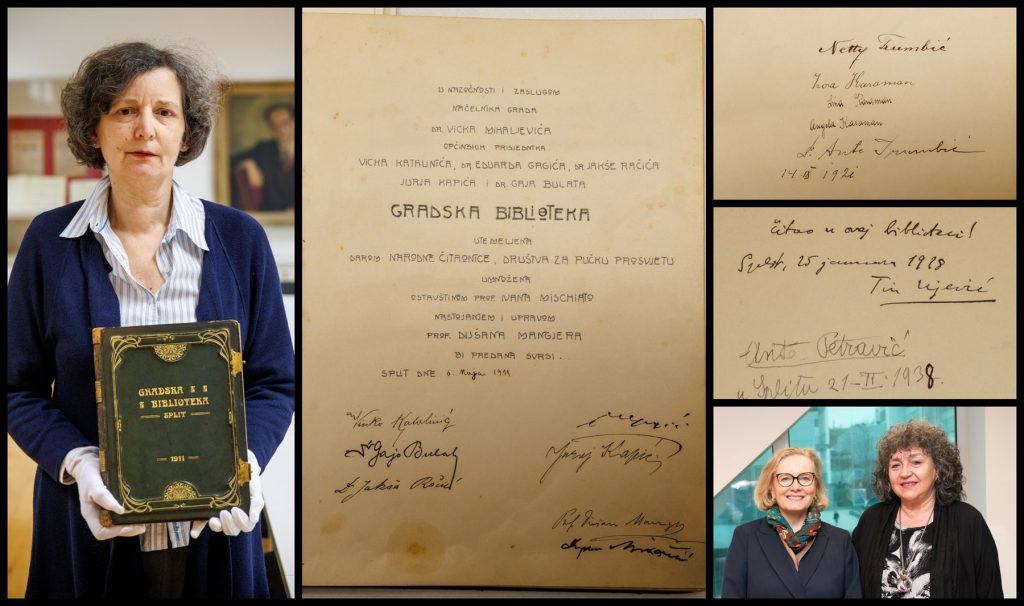 GRADSKA
BIBLIOTEKA
SPLIT
1911
U NAZOČNOSTI I ZASLUGOM
NAČELNIKA GRADA
DR. VICKA MIHALJEVIĆA
OPĆINSKIH PRISJEDNIKA
VICKA KATALINIĆA, DR. EDUARDA GRGIĆA, DR. JAKŠE RAČIĆA
JURJA KAPIĆA I DR. GAJA BULATA
GRADSKA BIBLIOTEKA
UTEMELJENA
DAROM NARODNE ČITAONICE, DRUŠTVA ZA PUČKU PROSVJETU
UMNOŽENA
OSTAVŠTINOM PROF. IVANA MISCHIATO
NASTOJANJEM I UPRAVOM
PROF. DUŠANA MANGJERA
BI PREDANA SVRSI.
SPLIT DNE 6. Maja 1911
Vinko Katalinić
Dr Gajo Bulat
Juraj Kapić
Dr Jakša Račić
Prof. Dušan
Netty Trumbić
Iva Karaman
Karaman
Angela Karaman
Dr. Ante Trumbić
14 IX 1921
Čitao u ovoj biblioteci!
Split, 25 januara 1928
Tin Ujević
Ante Petravić
u Splitu 21-II-1938.